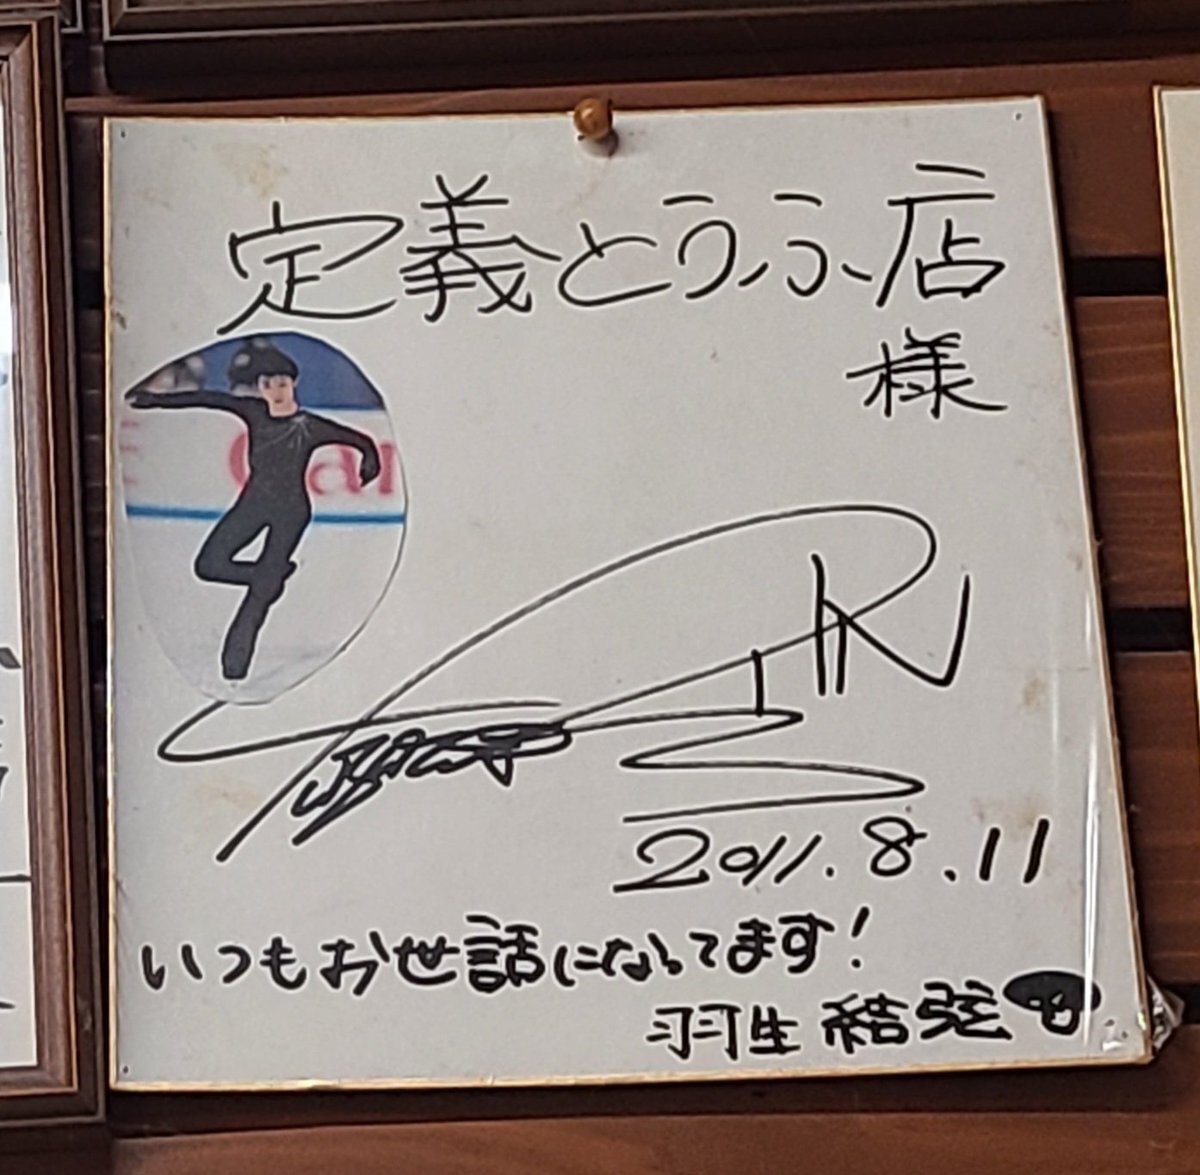 定義とうふ店
様
2011.8.11
いつもお世話になってます!
羽生結弦